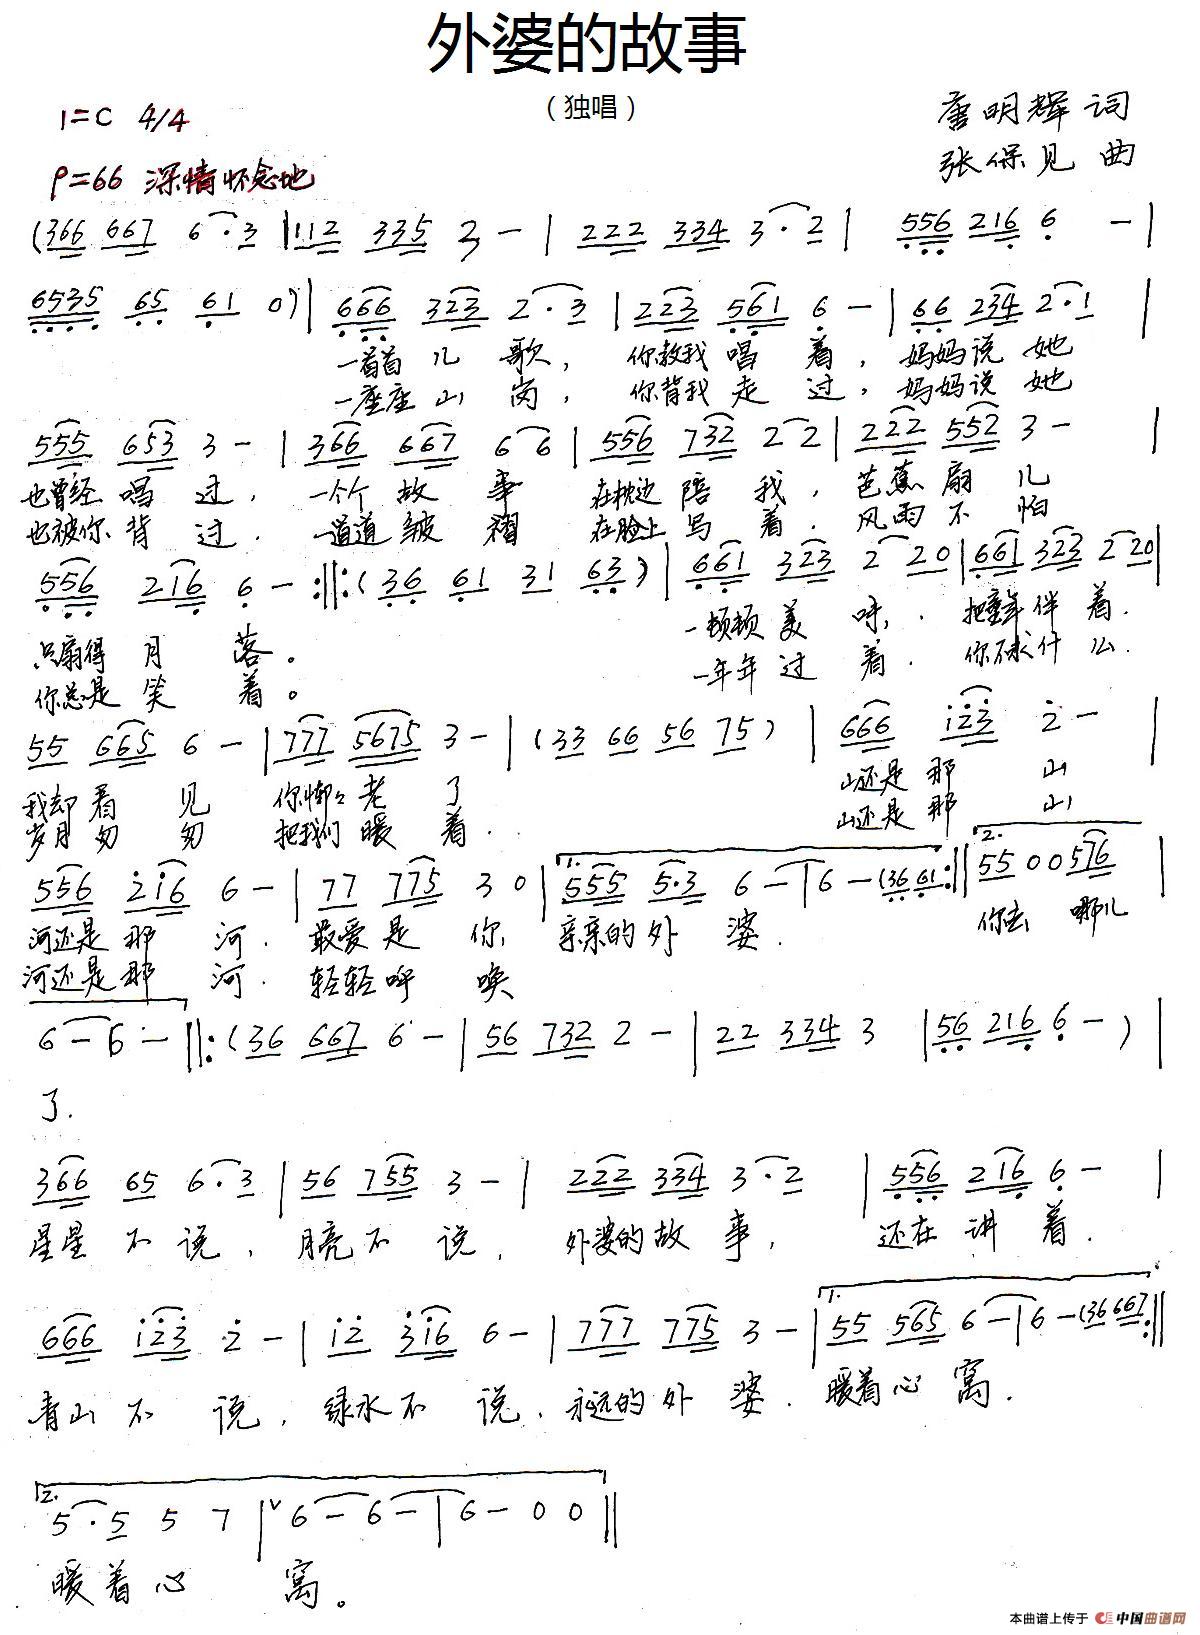 外婆的故事
（独唱）
1=C 4/4
唐明辉 词
张保见 曲
♩=66 深情怀念地
(366 667 6·3 | 112 335 2 - | 222 334 3·2 | 556 216 6 - |
6535 65 61 0) | 666 323 2·3 | 223 561 6 - | 66 234 2·1 |
一首首儿歌， 你教我唱着， 妈妈说她
一座座山岗， 你背我走过， 妈妈说她
555 653 3 - | 366 667 6 6 | 556 732 2 2 | 222 552 3 - |
也曾经唱过， 一个个故事 在枕边陪我， 芭蕉扇儿
也被你背过． 一道道皱褶 在脸上写着． 风雨不怕
556 216 6 - :||: (36 61 31 63) | 661 323 2 20 | 661 323 2 20 |
只扇得月落。 一顿顿美味， 把童年伴着．
你总是笑着。 一年年过着． 你不求什么．
55 665 6 - | 777 5675 3 - | (33 66 56 75) | 666 123 2 - |
我却看见 你懒懒老了 山还是那山
岁月匆匆 把我们暖着． 山还是那山
556 216 6 - | 77 775 3 0 | 1. 555 5·3 6 - | 6 - (36 61 :|| 2. 55 0 0 576 |
河还是那河． 最爱是你， 亲亲的外婆． 你去哪儿
河还是那河． 轻轻呼唤
6 - 6 - ||: (36 667 6 - | 56 732 2 - | 22 334 3 | 56 216 6 - ) |
了．
366 65 6·3 | 56 755 3 - | 222 334 3·2 | 556 216 6 - |
星星不说， 月亮不说， 外婆的故事， 还在讲着．
666 123 2 - | 12 316 6 - | 777 775 3 - | 1. 55 565 6 - | 6 - (36 667 :||
青山不说， 绿水不说， 永远的外婆． 暖着心窝．
2. 5·5 5 7 | 6 - 6 - | 6 - 0 0 ||
暖着心窝。
本曲谱上传于 中国曲谱网